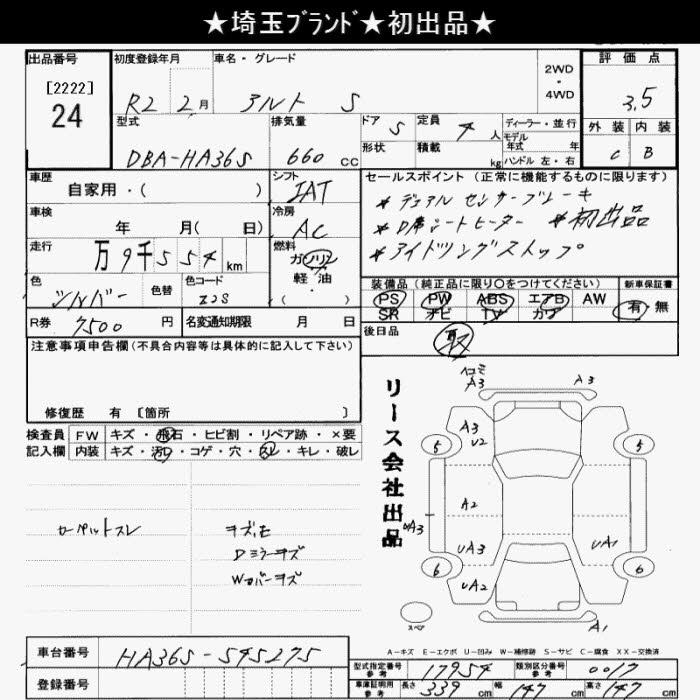 ★埼玉ﾌﾞﾗﾝﾄﾞ★初出品★
出品番号
[2222]
24
初度登録年月
R2 2月
車名・グレード
アルト S
2WD
・
4WD
評価点
3.5
外装 内装
C B
型式
DBA-HA36S
排気量
660 CC
ドア 5
定員 4人
形状
積載 kg
ディーラー・並行
モデル
年式 年
ハンドル 左・右
車歴
自家用・( )
シフト
IAT
車検
年 月( 日)
冷房
AC
走行
万9千554km
燃料
ガソリン
軽油
・
( )
色
シルバー
色替
色コード
Z2S
R券
7500円
名変通知期限 月 日
セールスポイント(正常に機能するものに限ります)
*デュアルセンサーブレーキ
*D席シートヒーター *初出品
*アイドリングストップ
装備品(純正品に限り〇をつけてください)
PS PW ABS エアB AW
SR ナビ TV カワ
新車保証書
有・無
後日品
取
注意事項申告欄(不具合内容等は具体的に記入して下さい)
修復歴 有 [箇所 ]
検査員
記入欄
FW キズ・飛石・ヒビ割・リペア跡・×要
内装 キズ・汚レ・コゲ・穴・スレ・キレ・破レ
カーペットスレ
Dミラーキズ
Wカバーキズ
リース会社出品
ヘコミ
A3 A3
A3
U2
5 5
A2
A3
UA3 UA1
6 6
UA2
A1
スペア
A-キズ E-エクボ U-凹み W-補修跡 S-サビ C-腐食 XX-交換済
車台番号
HA36S-545275
登録番号
型式指定番号
参考
17954
類別区分番号
参考
0017
車庫証明用
参考
長さ 339cm 幅 147cm 高さ 147cm